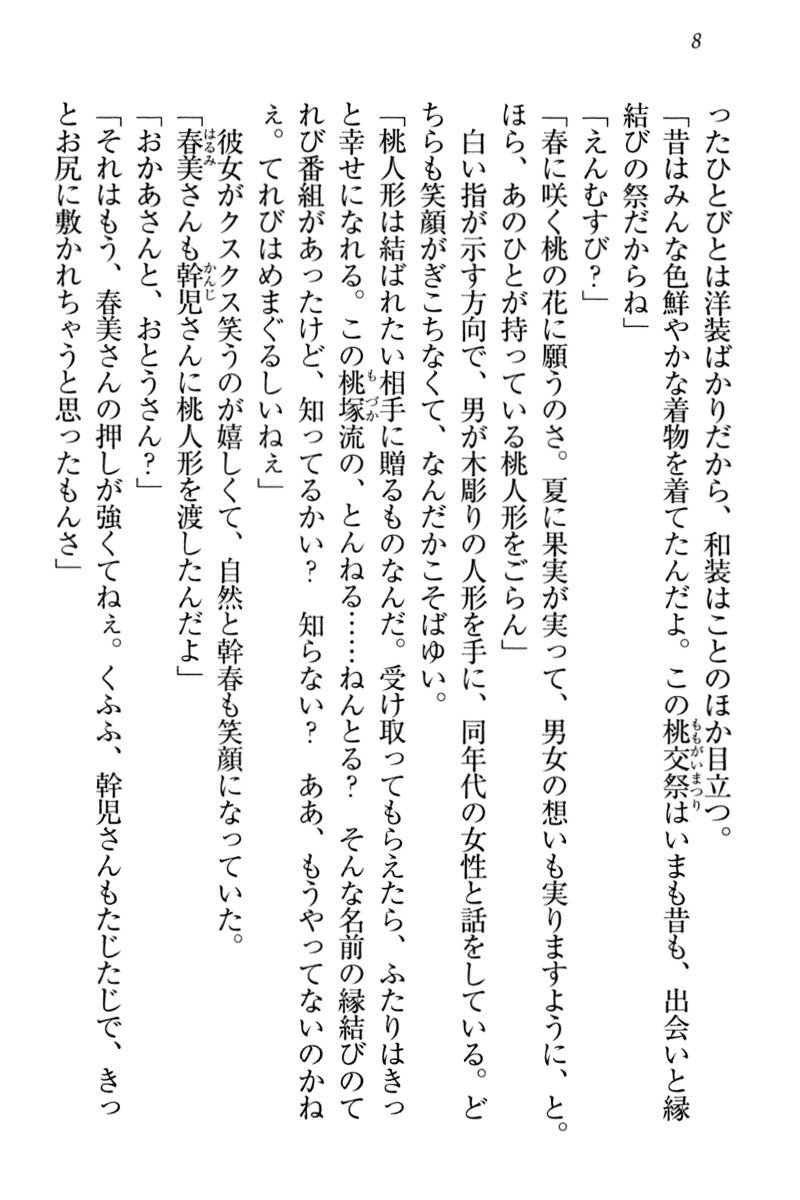 8
ったひとびとは洋装ばかりだから、和装はことのほか目立つ。
「昔はみんな色鮮やかな着物を着てたんだよ。この桃交祭はいまも昔も、出会いと縁
結びの祭だからね」
「えんむすび？」
「春に咲く桃の花に願うのさ。夏に果実が実って、男女の想いも実りますように、と。
ほら、あのひとが持っている桃人形をごらん」
白い指が示す方向で、男が木彫りの人形を手に、同年代の女性と話をしている。ど
ちらも笑顔がぎこちなくて、なんだかこそばゆい。
「桃人形は結ばれたい相手に贈るものなんだ。受け取ってもらえたら、ふたりはきっ
と幸せになれる。この桃塚流の、とんねる……ねんとる？　そんな名前の縁結びのて
れび番組があったけど、知ってるかい？　知らない？　ああ、もうやってないのかね
ぇ。てれびはめまぐるしいねぇ」
彼女がクスクス笑うのが嬉しくて、自然と幹春も笑顔になっていた。
「春美さんも幹児さんに桃人形を渡したんだよ」
「おかあさんと、おとうさん？」
「それはもう、春美さんの押しが強くてねぇ。くふふ、幹児さんもたじたじで、きっ
とお尻に敷かれちゃうと思ったもんさ」
ももがいまつり
もづか
はるみ
かんじ